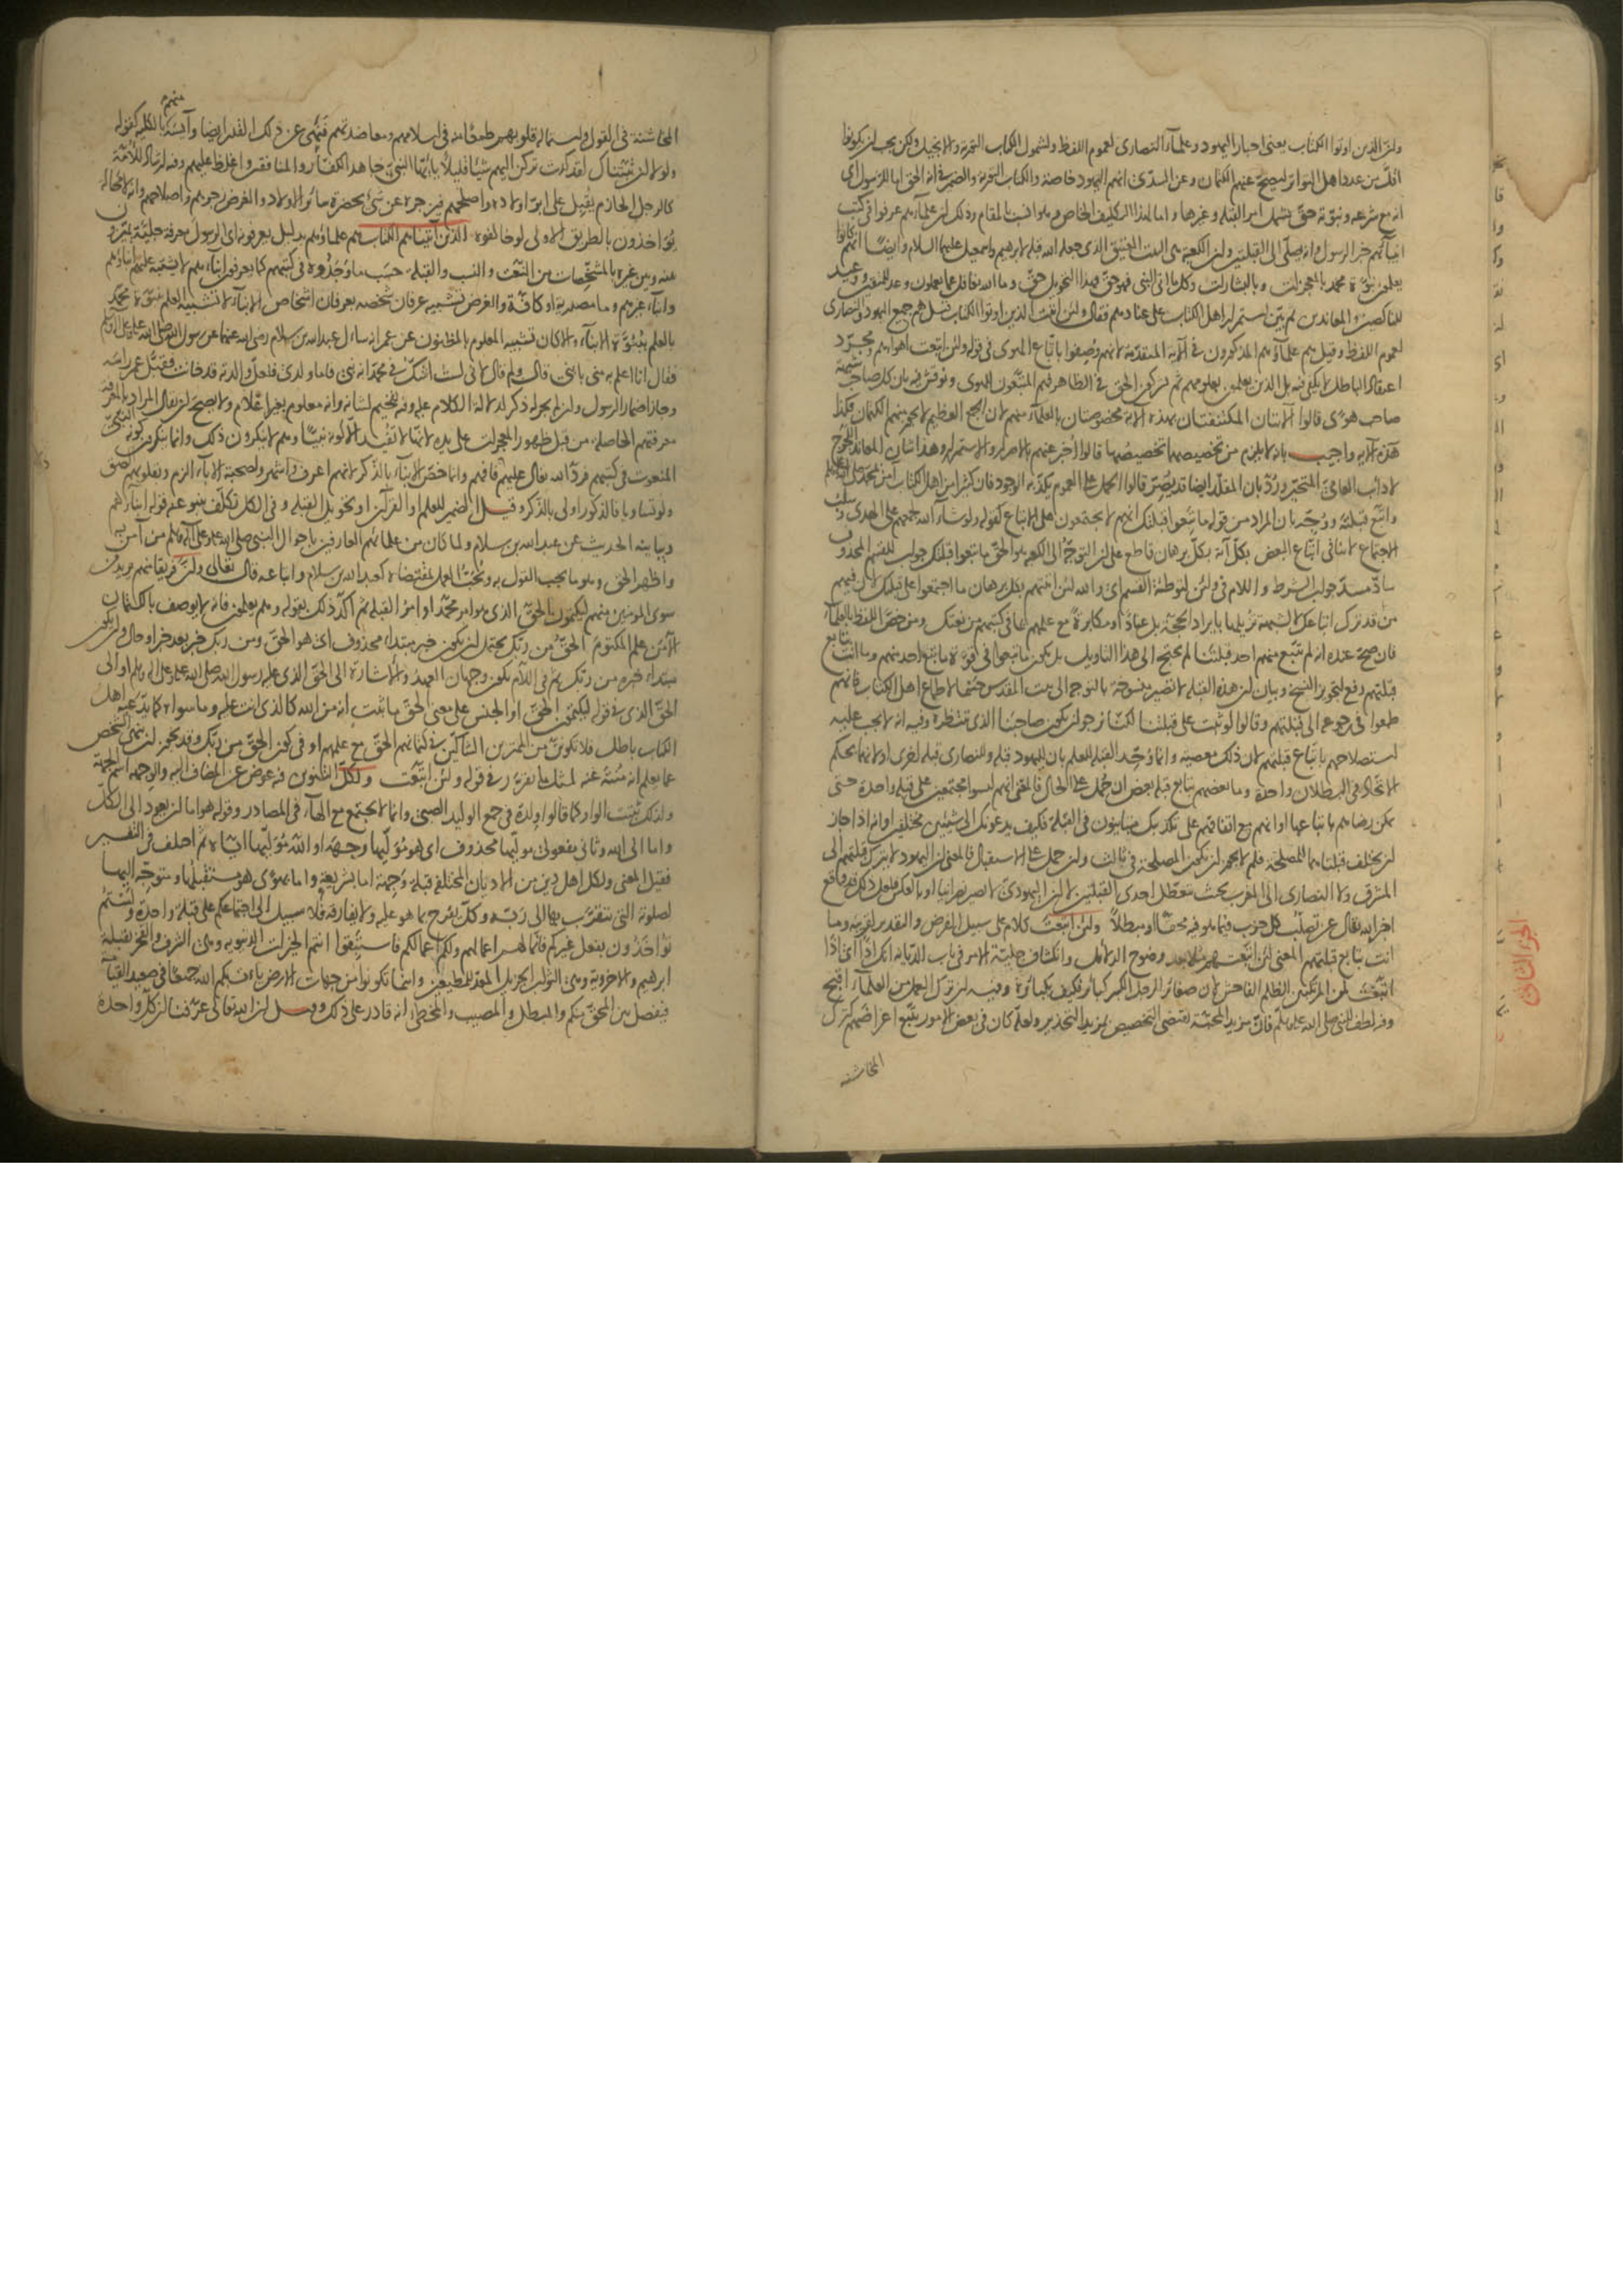 وان الذين اوتوا الكتاب يعنى احبار اليهود وعلمآء النصارى لعموم اللفظ ولشمول الكتاب التورية والانجيل ولكن يجب ان يكونوا
اقل من عدد اهل التواتر ليصح عنهم الكتمان وعن السدى انهم اليهود خاصة والكتاب التورية والضمير فى انه الحق اما للرسول اى
انه مع شرعه ونبوته حق يشمل امر القبلة وغيرها واما لهذا التكليف الخاص وهو انسب بالمقام وذلك ان علمآءهم عرفوا فى كتب
انبيآئهم خبر الرسول وانه يصلى الى القبلتين وان الكعبة هى البيت العتيق الذى جعله الله قبلة لابرهيم واسمعيل عليهما السلام وايضا انهم كانوا
يعلمون نبوة محمد بالمعجزات وبالبشارات وكل ما اتى النبى فهو حق فهذا التحويل حق وما الله بغافل عما يعملون وعد للمتقين ووعيد
للناكصين والمعاندين ثم بين استمرار اهل الكتاب على عنادهم فقال ولئن اتيت الذين اوتوا الكتاب قيل هم جميع اليهود والنصارى
لعموم اللفظ وقيل هم علمآؤهم المذكورون فى الآية المتقدمة لانهم وصفوا باتباع الهوى فى قوله ولئن اتبعت اهوآءهم ومجرد
اعتقاد الباطل لا يكفى فيه بل الذين يعلمون بعلومهم ثم ينكرون الحق فى الظاهر فهم المتبعون للهوى ونوقش فيه بان كل صاحب شبهة
صاحب هوى قالوا الآيتان المكتنفتان بهذه الآية مخصوصتان بالعلمآء منهم لان الجمع العظيم لا يجوز منهم الكتمان فكذا
هذه الآية واجيب بانه لا يلزم من تخصيصهما تخصيصها قالوا اخبر عنهم بالاصرار والاستمرار وهذا شان المعاند اللجوج
لا دأب العامى المتحير ورد بان المقلد ايضا قد يصر قالوا الحمل على العموم يكذبه الوجود فان كثيرا من اهل الكتاب آمن بمحمد صلى الله عليه وسلم
واتبع قبلته ووجه بان المراد من قوله ما تبعوا قبلتك انهم لا يجتمعون على الاتباع كقوله ولو شآء الله لجمعهم على الهدى وسلب
الاجتماع لا ينافى اتباع البعض بكل آية بكل برهان قاطع على ان التوجه الى الكعبة هو الحق ما تبعوا قبلتك جواب للقسم المحذوف
ساد مسد جواب الشرط واللام فى ولئن لتوطئة القسم اى والله لئن اتيتهم بكل برهان ما اجتمعوا على قبلتك لان فيهم
من قد ترك اتباعك لا لشبهة تزيلها بايراد الحجة بل عنادا ومكابرة مع علمهم بما فى كتبهم من نعتك ومن خص اللفظ بالعلمآء
فان صح عنده انه لم يتبع منهم احد قبلتنا لم يحتج الى هذا التاويل بل يكون ما تبعوا فى قوة ما يتبع احد منهم وما انت بتابع
قبلتهم دفع لتجويز النسخ وبيان ان هذه القبلة لا تصير منسوخة بالتوجه الى بيت المقدس حسما لاطماع اهل الكتاب فانهم
طمعوا فى رجوعه الى قبلتهم وقالوا لو ثبت على قبلتنا لكنا نرجو ان يكون صاحبنا الذى ننتظره وفيه انه لا يجب عليه
استصلاحهم باتباع قبلتهم لان ذلك معصية وانما وحد القبلة للعلم بان لليهود قبلة وللنصارى قبلة اخرى او لانهما بحكم
الاتحاد فى البطلان واحدة وما بعضهم بتابع قبلة بعض ان حمل على الحال فالمعنى انهم ليسوا مجتمعين على قبلة واحدة حتى
يمكن رضاهم باتباعها او انهم مع اتفاقهم على تكذيبك متباينون فى القبلة فكيف يدعونك الى شيئين مختلفين او انه اذا جاز
ان يختلف قبلتاهما للمصلحة فلم لا يجوز ان يكون المصلحة فى ثالث وان حمل على الاستقبال فالمعنى ان اليهود لا يترك قبلتهم الى
المشرق ولا النصارى الى المغرب بحيث تتعطل احدى القبلتين لا ان اليهودى لا يصير نصرانيا او بالعكس فلعل ذلك قد وقع
اخبر الله تعالى عن تصلب كل حزب فيما هو فيه محقا او مبطلا ولئن اتبعت كلام على سبيل الفرض والتقدير لقرينة وما
انت بتابع قبلتهم المعنى لئن اتبعتهم مثلا بعد وضوح الدلائل وانكشاف جلية الامر فى باب الديانة انك اذا اى اذا
اتبعت لمن المرتكبين الظلم الفاحش لان صغائر الرجل الكبير كبائر فكيف بكبائره وفيه ان ترك العمل من العلمآء اقبح
وفيه لطف للنبى صلى الله عليه وسلم فان مزيد المحبة يقتضى التخصيص بمزيد التحذير ولعله كان فى بعض الامور يتبع اغراضهم كترك
المخاشنة
الجزء الثانى
المخاشنة فى القول واستمالة قلوبهم طمعا منه فى اسلامهم ومعاضدتهم فنهى عن ذلك القدر ايضا وآيسه منهم بالكلية كقوله
ولولا ان ثبتناك لقد كدت تركن اليهم شيئا قليلا يا ايها النبى جاهد الكفار والمنافقين واغلظ عليهم وفيه ارشاد للامة
كالرجل الحازم يقبل على ابر اولاده واصلحهم فيزجره عن شئ بحضرة سائر الاولاد والغرض زجرهم واصلاحهم وانه لا محالة
يؤاخذون بالطريق الاولى لو خالفوه الذين آتيناهم الكتاب هم علماؤهم بدليل يعرفونه اى الرسول معرفة جلية يميزون
بينه وبين غيره بالمشخصات من النعت والنسب والقبلة حسب ما وجدوه فى كتبهم كما يعرفون ابناءهم لا يشتبه عليهم ابناؤهم
وابناء غيرهم وما مصدرية او كافة والغرض تشبيه عرفان شخصه بعرفان اشخاص الابناء لا تشبيه العلم بنبوة محمد
بالعلم ببنوة الابناء والا كان تشبيه المعلوم بالمظنون عن عمر انه سأل عبد الله بن سلام رضى الله عنهما عن رسول الله صلى الله عليه وعلى آله وسلم
فقال انا اعلم به منى بابنى قال ولم قال لانى لست اشك فى محمد انه نبى فاما ولدى فلعل والدته قد خانت فقبل عمر راسه
وجاز اضمار الرسول وان لم يجر له ذكر لدلالة الكلام عليه وفيه تفخيم لشانه وانه معلوم بغير اعلام ولا يصح ان يقال المراد بالمعرفة
معرفتهم الحاصلة من قبل ظهور المعجزات على يده لانها لا تفيد الا كونه نبيا وهم لا ينكرون ذلك وانما ينكرون كونه النبى
المنعوت فى كتبهم فرد الله تعالى عليهم فافهم وانما خص الابناء بالذكر لانهم اعرف واشهر ولصحبة الآباء الزم وبقلوبهم الصق
ولو تساويا فالذكور اولى بالذكر وقيل الضمير للعلم او القرآن او تحويل القبلة وفى الكل تكلف ينبو عنه قوله ابناءهم
ويباينه الحديث عن عبد الله بن سلام ولما كان من علمائهم العارفين باحوال النبى صلى الله عليه وعلى آله وسلم من آمن به
واظهر الحق وهو ما يجب القول به ويجب العمل بمقتضاه كعبد الله بن سلام واتباعه قال تعالى وان فريقا منهم يريدون
سوى المؤمنين منهم ليكتمون الحق الذى هو امر محمد او امر القبلة ثم اكد ذلك بقوله وهم يعلمون فانه لا يوصف بالكتمان
الا من علم المكتوم الحق من ربك يحتمل ان يكون خبر مبتداء محذوف اى هو الحق ومن ربك خبر بعد خبر او حال وان يكون
مبتداء خبره من ربك ثم فى اللام يكون وجهان العهد والاشارة الى الحق الذى عليه رسول الله صلى الله عليه وعلى آله وسلم او الى
الحق الذى فى قوله ليكتمون الحق او الجنس على معنى الحق ما يثبت انه من الله كالذى انت عليه وما سواه كما يدعيه اهل
الكتاب باطل فلا تكونن من الممترين الشاكين فى كتمانهم الحق مع علمهم او فى كون الحق من ربك وقد يجوز ان ينهى الشخص
عما يعلم انه منته عنه لمثل ما تقرر فى قوله ولئن اتبعت ولكل التنوين فيه عوض عن المضاف اليه والوجهة اسم الجهة
ولذلك تثبت الواو كما قالوا ولدة فى جمع الوليد الصبى وانما لا يجتمع مع الهاء فى المصادر وقوله هو اما ان يعود الى الكل
واما الى الله وثانى مفعولى موليها محذوف اى هو موليها وجهه او الله موليها اياه ثم اختلف فى التفسير
فقيل المعنى ولكل اهل دين من الاديان المختلفة قبلة وجهة اما بشريعة واما بهوى هو مستقبلها ومتوجه اليها
لصلوته التى يتقرب بها الى ربه وكل يفرح بما هو عليه ولا يفارقه فلا سبيل الى اجتماعكم على قبلة واحدة ولستم
تؤاخذون بفعل غيركم فانما لهم اعمالهم ولكم اعمالكم فاستبقوا انتم الخيرات الدنيوية وهى الشرف والفخر بقبلة
ابرهيم والاخروية وهى الثواب الجزيل المعد للمطيعين واينما تكونوا من جهات الارض يأت بكم الله جميعا فى صعيد القيامة
فيفصل بين المحق منكم والمبطل والمصيب والمخطئ انه قادر على ذلك وقيل ان الله تعالى عرفنا ان كل واحدة